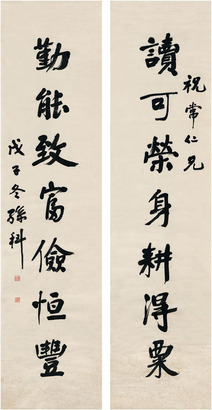 祝常仁兄
讀可榮身耕得粟
勤能致富儉恒豐
戊子冬孫科